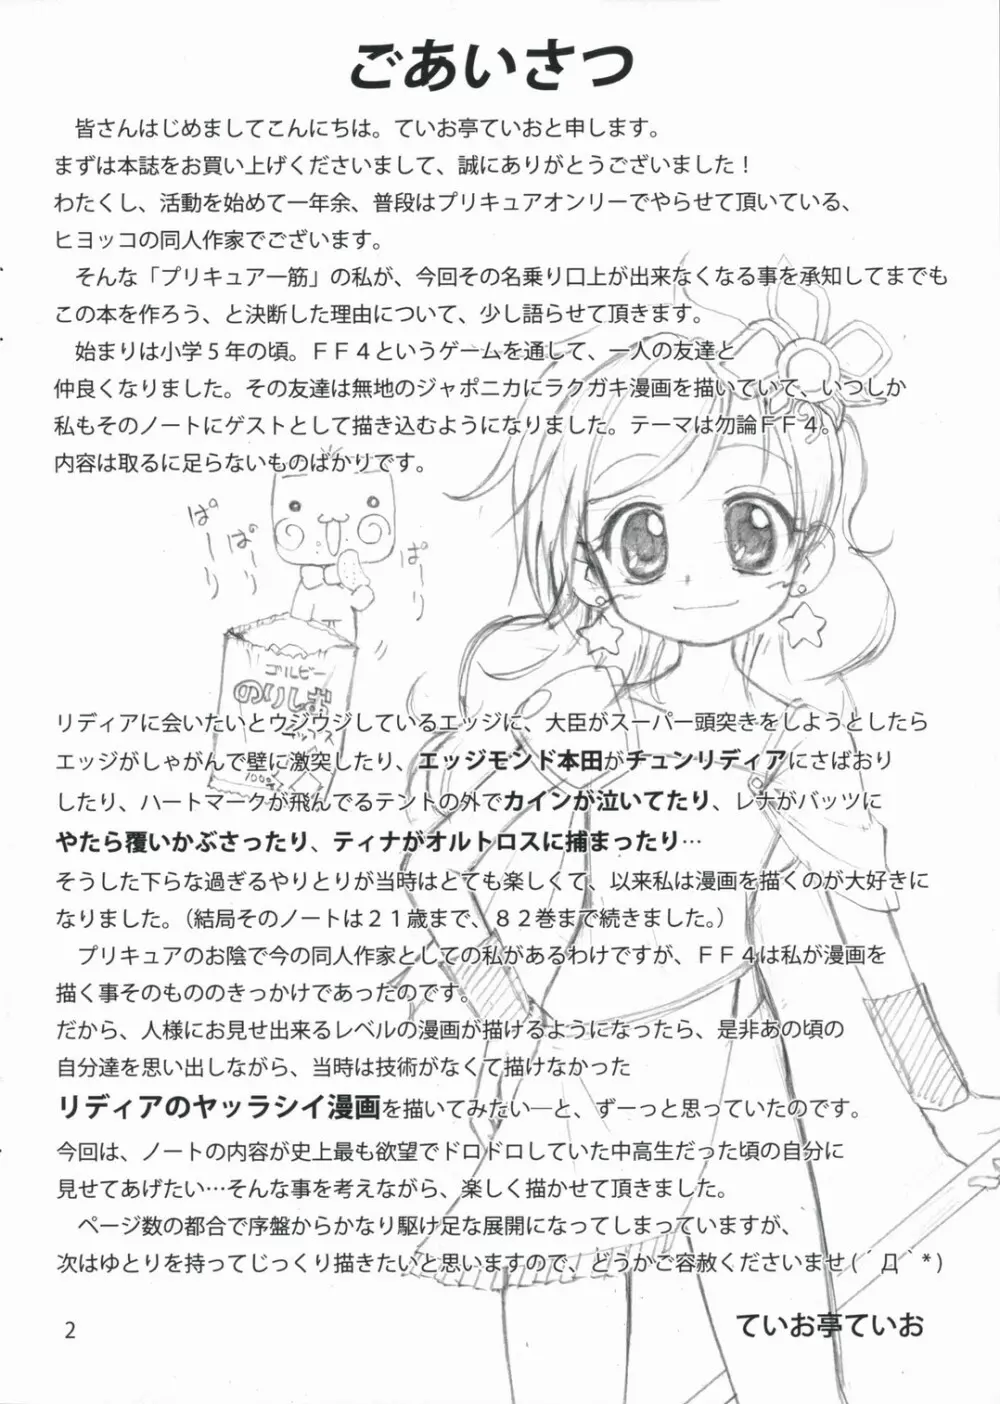 ごあいさつ
皆さんはじめましてこんにちは。ていお亭ていおと申します。
まずは本誌をお買い上げくださいまして、誠にありがとうございました！
わたくし、活動を始めて一年余、普段はプリキュアオンリーでやらせて頂いている、
ヒヨッコの同人作家でございます。
そんな「プリキュア一筋」の私が、今回その名乗り口上が出来なくなる事を承知してまでも
この本を作ろう、と決断した理由について、少し語らせて頂きます。
始まりは小学５年の頃。ＦＦ４というゲームを通して、一人の友達と
仲良くなりました。その友達は無地のジャポニカにラクガキ漫画を描いていて、いつしか
私もそのノートにゲストとして描き込むようになりました。テーマは勿論ＦＦ４。
内容は取るに足らないものばかりです。
ぱーり
ぱーり
ぱーり
ゴルビー
のりしお
チップス
100%
リディアに会いたいとウジウジしているエッジに、大臣がスーパー頭突きをしようとしたら
エッジがしゃがんで壁に激突したり、エッジモンド本田がチュンリディアにさばおり
したり、ハートマークが飛んでるテントの外でカインが泣いてたり、レナがバッツに
やたら覆いかぶさったり、ティナがオルトロスに捕まったり…
そうした下らな過ぎるやりとりが当時はとても楽しくて、以来私は漫画を描くのが大好きに
なりました。（結局そのノートは２１歳まで、８２巻まで続きました。）
プリキュアのお陰で今の同人作家としての私があるわけですが、ＦＦ４は私が漫画を
描く事そのもののきっかけであったのです。
だから、人様にお見せ出来るレベルの漫画が描けるようになったら、是非あの頃の
自分達を思い出しながら、当時は技術がなくて描けなかった
リディアのヤッラシイ漫画を描いてみたい―と、ずーっと思っていたのです。
今回は、ノートの内容が史上最も欲望でドロドロしていた中高生だった頃の自分に
見せてあげたい…そんな事を考えながら、楽しく描かせて頂きました。
ページ数の都合で序盤からかなり駆け足な展開になってしまっていますが、
次はゆとりを持ってじっくり描きたいと思いますので、どうかご容赦くださいませ(´Д｀*)
ていお亭ていお
2